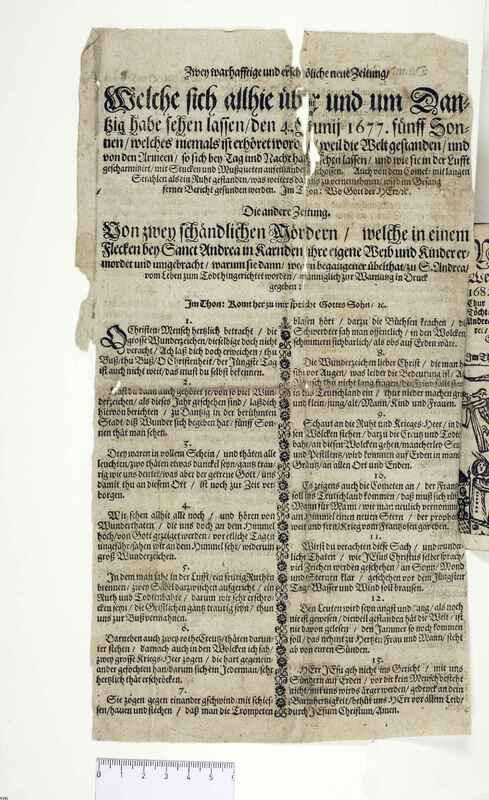 Zwey warhafftige und erschröckliche neue Zeitung/
Welche sich allhie über und um Dan-
tzig habe sehen lassen/ den 4. Junij 1677. fünff Son-
nen/ welches niemals ist erhöret worden/ weil die Welt gestanden/ und
von den Armeen/ so sich bey Tag und Nacht haben sehen lassen/ und wie sie in der Lufft
gescharmützirt/ mit Stucken und Mußqueten aufeinander geschossen. Auch von dem Comet/ mit langen
Strahlen als ein Ruht gestanden/ was weiters darbey zu vernehmen/ wird im Gesang
ferner Bericht gefunden werden. Im Thon: Wo Gott der HErr/ ꝛc.
Die andere Zeitung.
Von zwey schändlichen Mördern/ welche in einem
Flecken bey Sanct Andrea in Kärnden/ ihre eigene Weib und Kinder er-
mordet und umgebracht/ warum sie dann/ wegen begangener übelthat/ zu S. Andrea/
vom Leben zum Tod hingerichtet worden/ männiglich zur Warnung in Druck
gegeben:
Im Thon: Komt her zu mir spricht Gottes Sohn/ ꝛc.
1.
O Christen Mensch hertzlich betracht/ die
grosse Wunderzeichen/ dieselbige doch nicht
veracht/ Ach laß dich doch erweichen/ thu
Buß/ thu Buß/ O Christenheit/ der Jüngste Tag
ist auch nicht weit/ das must du selbst bekennen.
2.
Hast du dann auch gehöret je/ von so viel Wun-
derzeichen/ als dieses Jahr geschehen sind/ laß dich
hiervon berichten/ zu Dantzig in der berühmten
Stadt/ diß Wunder sich begeben hat/ fünff Son-
nen thät man sehen.
3.
Drey waren in vollem Schein/ und thäten alle
leuchten/ zwo thäten etwas dunckel seyn/ gantz trau-
rig wie uns deucht/ was aber der getreue Gott/ uns
damit thu an diesem Ort/ ist noch zur Zeit ver-
borgen.
4.
Wir sehen allhie alle noch/ und hören von
Wunderthaten/ die uns doch an dem Himmel
hoch/ von Gott gezeiget werden/ vor etliche Tagen
ungefähr/ sahen wir an dem Himmel sehr/ widerum
groß Wunderzeichen.
5.
In dem man sahe in der Lufft/ ein feurig Ruthen
brennen/ zwey Säbel darzwischen aufgericht/ ein
Ruth und Todtenbahr/ darum wir sehr erschro-
cken seyn/ die Geistlichen gantz traurig seyn/ thun
uns zur Buß vermahnen.
6.
Darneben auch zwey rothe Creutz/ thäten darun-
ter stehen/ darnach auch in den Wolcken ich sah/
zwey grosse Kriegs-Heer zogen/ die hart gegenein-
ander gefochten han/ darum sich ein Jederman/ sehr
hertzlich thät erschröcken.
7.
Sie zögen gegen einander gschwind/ mit schies-
sen/ hauen und stechen/ daß man die Trompeten
blasen hört/ darzu die Büchsen krachen/
Schwerdter sah man öffentlich/ in den Wolcken
schimmeren sichbarlich/ als obs auf Erden wäre.
8.
Die Wunderzeichen lieber Christ/ die man
sehr vor Augen/ was leider die Bedeutung ist/
in das Teutschland ein/ thut nieder machen groß
und klein/ jung/ alt/ Mann/ Kind und Frauen.
9.
Schaut an die Ruht und Krieges-Heer/ in den
Wolcken stehen/ darzu die Creutz und Todten-
bahr/ an diesen Wolcken gehen/ mancherley Straff
und Pestilentz/ wird kommen auf Erden in manch
Gräntz/ an allen Ort und Enden.
10.
Es zeigens auch die Cometen an/ der Frantzos
soll ins Teutschland kommen/ daß muß sich rüsten
Mann für Mann/ wie man neulich vernommen/
am Himmel einen neuen Stern/ der prophe-
ceyt uns frey/ Krieg vom Frantzosen zu werden.
11.
Wirst du betrachten diese Sach/ und wunder-
liche Thaten/ wie JEsus Christus selber sprach/
viel Zeichen werden geschehen/ an Sonn/ Mond
und Sternen klar/ geschehen vor dem Jüngsten
Tag/ Wasser und Wind soll brausen.
12.
Den Leuten wird seyn angst und bang/ als noch
nie ist gewesen/ dieweil gestanden hat die Welt/ ist
nie davon gelesen/ den Jammer so noch kommen
soll/ das nehmt zu Hertzen Frau und Mann/ steht
ab von euren Sünden.
13.
HErr JEsu geh nicht ins Gericht/ mit uns
Sündern auf Erden/ vor dir kein Mensch bestehet
nicht/ mit uns wirds ärger werden/ gedenck an dein
Barmhertzigkeit/ behüt uns HErr vor allem Leid/
durch JEsum Christum/ Amen.